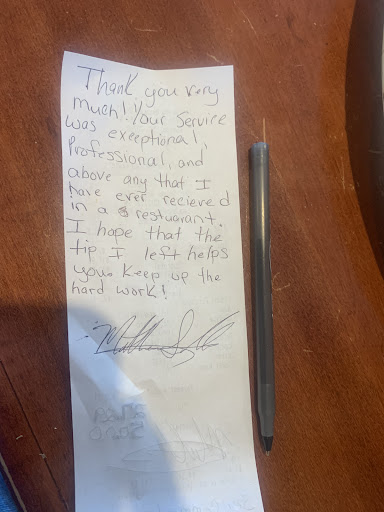 Thank you very
much! Your Service
was exceptional,
Professional, and
above any that I
have ever recieved
in a restuarant.
I hope that the
tip I left helps
you. Keep up the
hard work!